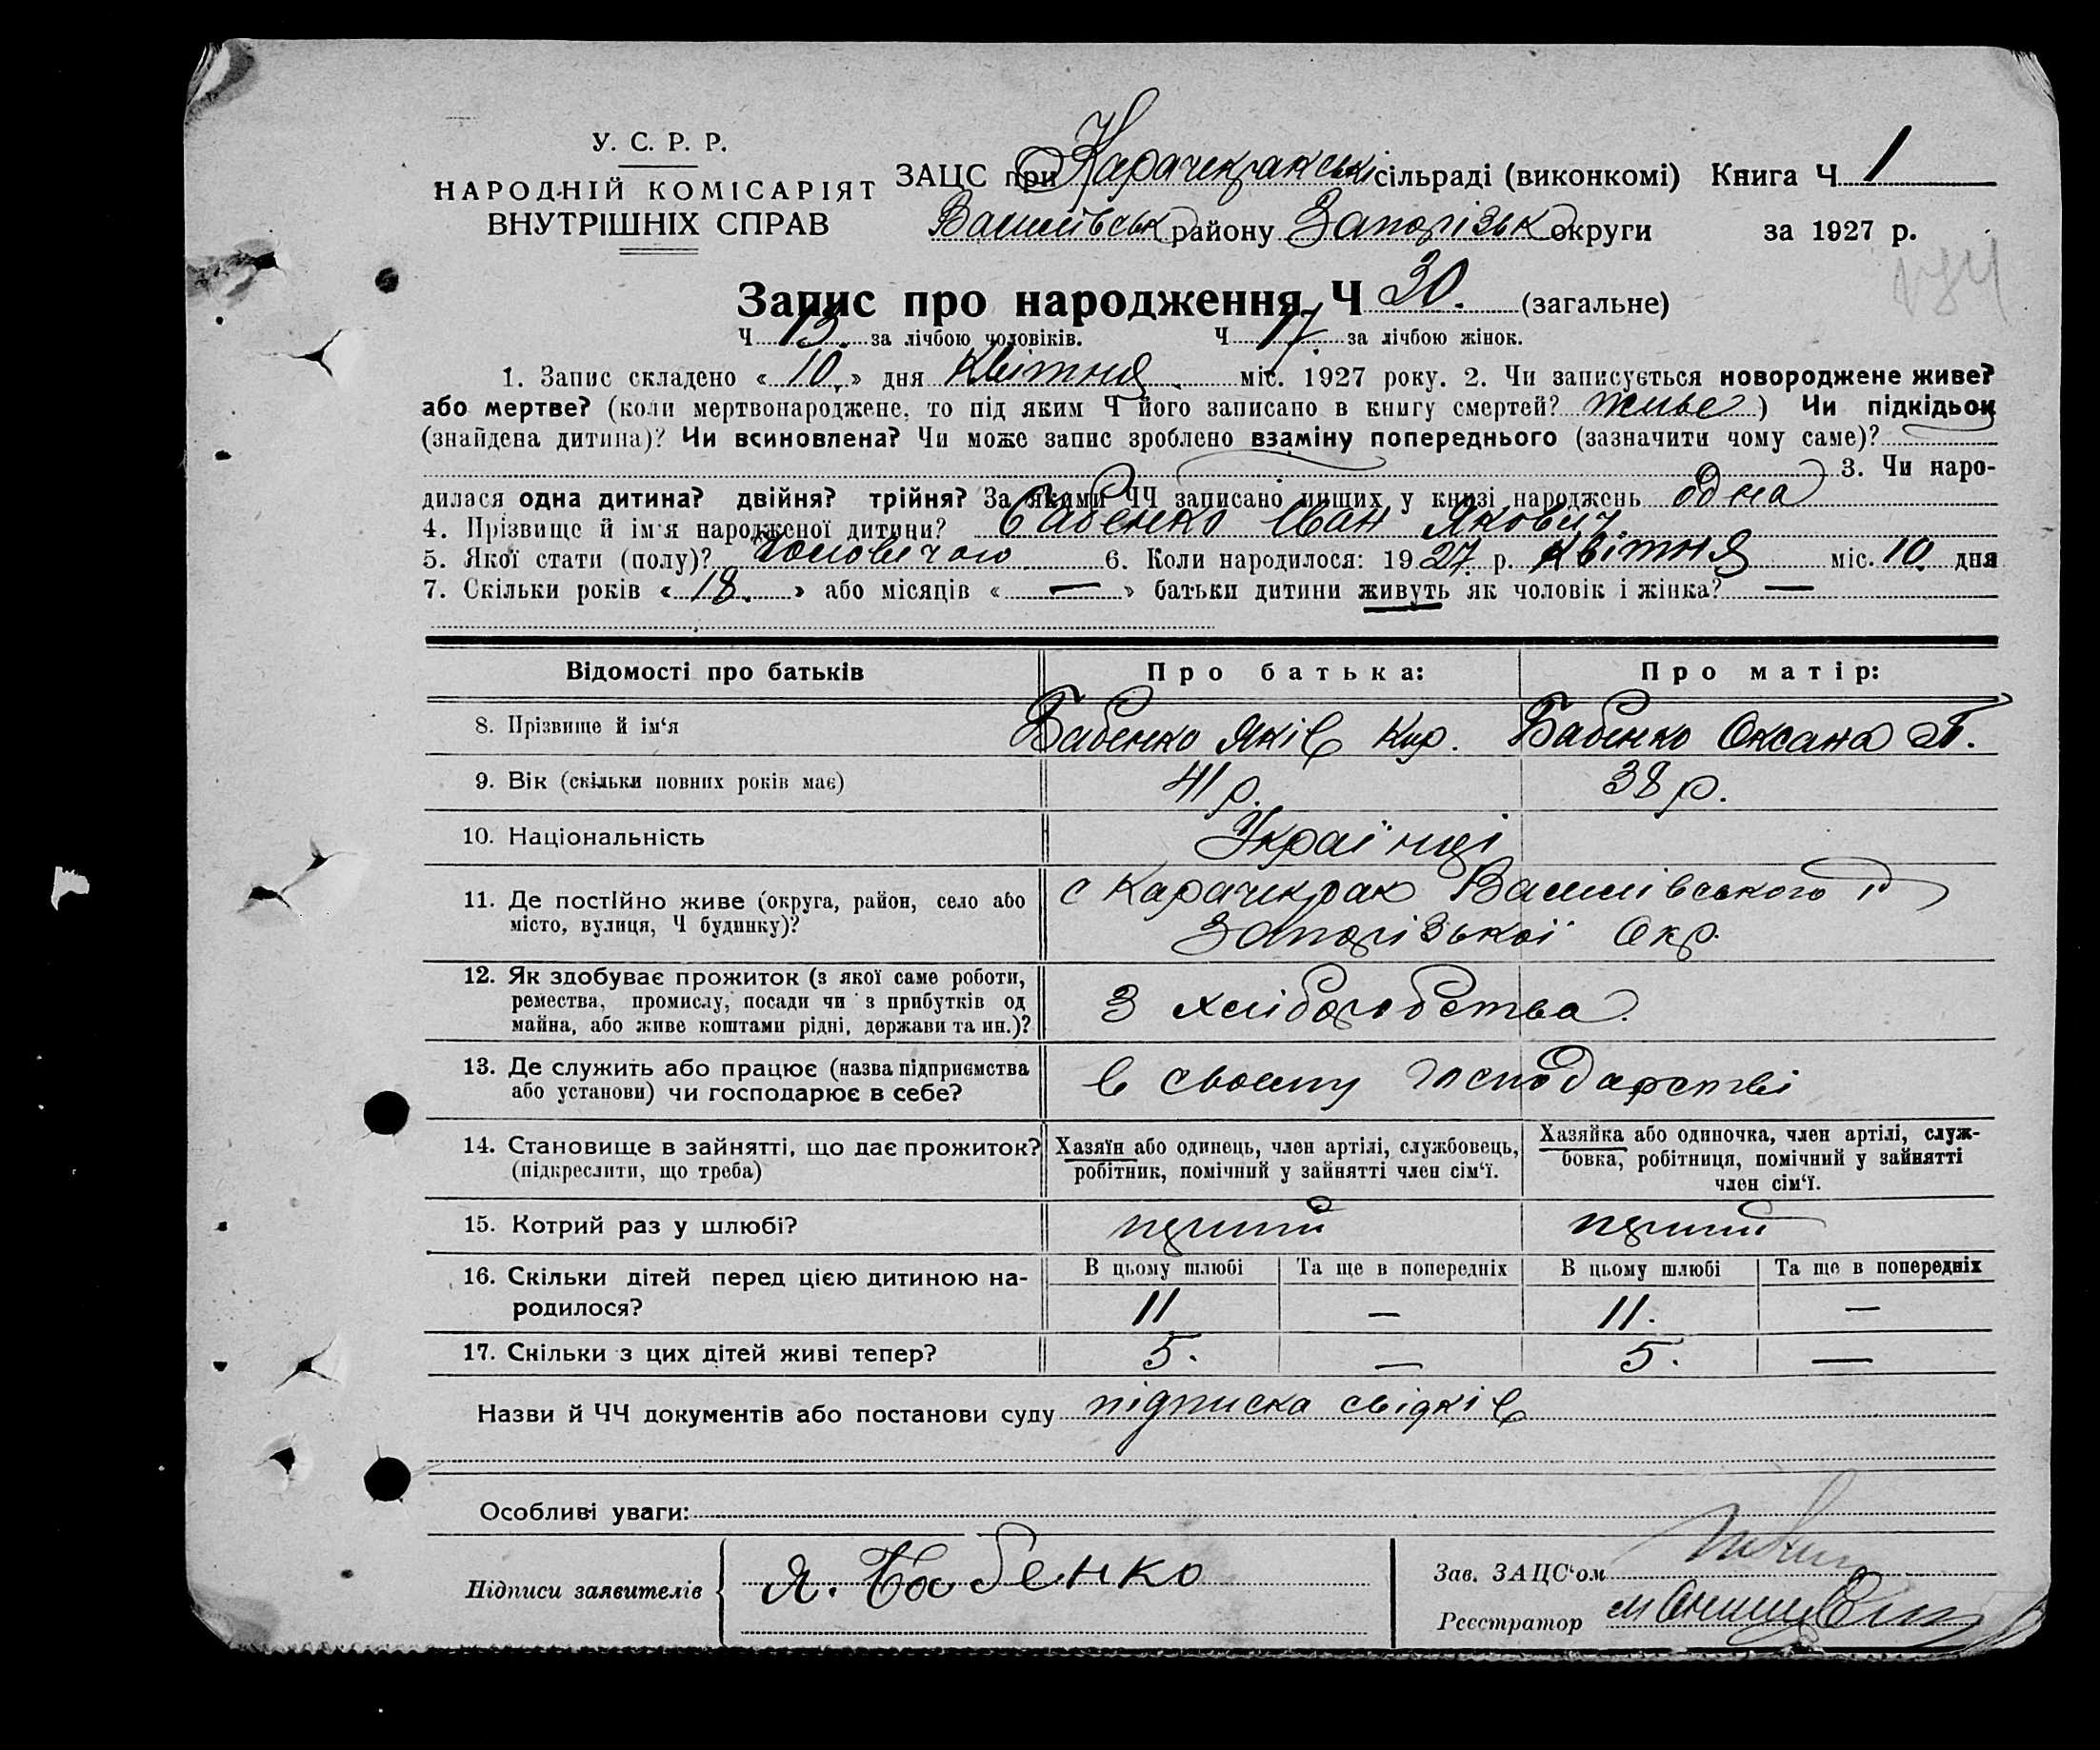 У. С. Р. Р.
НАРОДНІЙ КОМІСАРІЯТ
ВНУТРІШНІХ СПРАВ
ЗАЦС при Карачекракській сільраді (виконкомі) Книга Ч 1
Василівськ району Запоріськ округи за 1927 р.
Запис про народження Ч 30. (загальне)
Ч 13. за лічбою чоловіків. Ч 17. за лічбою жінок.
1. Запис складено « 10 » дня Квітня міс. 1927 року. 2. Чи записується новороджене живе?
або мертве? (коли мертвонароджене, то під яким Ч його записано в книгу смертей? живе ) Чи підкідьок
(знайдена дитина)? Чи всиновлена? Чи може запис зроблено взаміну попереднього (зазначити чому саме)?
3. Чи наро-
дилася одна дитина? двійня? трійня? За якими ЧЧ записано инших у книзі народжень одна
4. Прізвище й ім'я народженої дитини? Бабенко Іван Якович
5. Якої стати (полу)? Чоловічого 6. Коли народилося: 1927. р. Квітня міс. 10. дня
7. Скільки років « 18. » або місяців « — » батьки дитини живуть як чоловік і жінка? —
Відомості про батьків Про батька: Про матір:
8. Прізвище й ім'я Бабенко Яків Кир. Бабенко Оксана П.
9. Вік (скільки повних років має) 41 р. 38 р.
10. Національність Українці
11. Де постійно живе (округа, район, село або місто, вулиця, Ч будинку)? с Карачекрак Василівського р
Запорізької Окр.
12. Як здобуває прожиток (з якої саме роботи,
ремества, промислу, посади чи з прибутків од
майна, або живе коштами рідні, держави та ин.)? З хліборобства.
13. Де служить або працює (назва підприємства
або установи) чи господарює в себе? в своему господарстві
14. Становище в зайнятті, що дає прожиток?
(підкреслити, що треба)
Хазяїн або одинець, член артілі, службовець,
робітник, помічний у зайнятті член сім'ї.
Хазяйка або одиночка, член артілі, служ-
бовка, робітниця, помічний у зайнятті
член сім'ї.
15. Котрий раз у шлюбі? перший перший
16. Скільки дітей перед цією дитиною на-
родилося?
В цьому шлюбі Та ще в попередніх В цьому шлюбі Та ще в попередніх
11 — 11. —
17. Скільки з цих дітей живі тепер? 5. — 5. —
Назви й ЧЧ документів або постанови суду підписка свідків
Особливі уваги:
Підписи заявителів Я. Бабенко
Зав. ЗАЦС'ом
Реєстратор